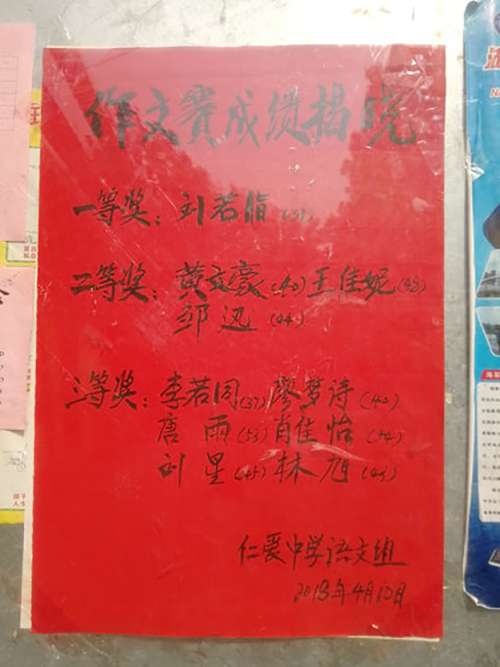 作文赛成绩揭晓
一等奖：刘若脂（31）
二等奖：黄文豪（40）王佳妮（48）
邹迅（44）
三等奖：李若同（37）廖梦诗（40）
唐雨（53）肖佳怡（54）
刘星（45）林旭（43）
仁爱中学语文组
2018年4月12日